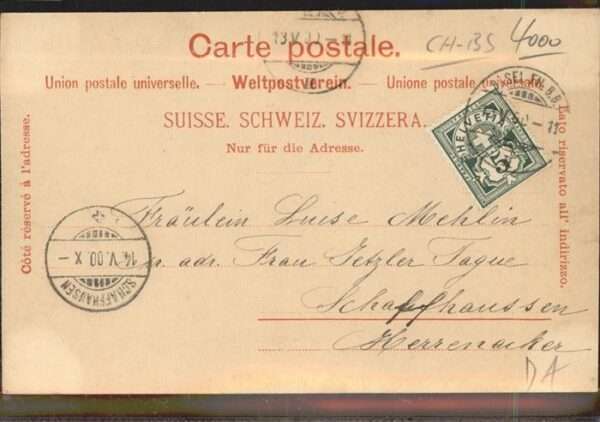 Carte postale.
CH-BS 4000
Union postale universelle. — Weltpostverein. — Unione postale
SUISSE. SCHWEIZ. SVIZZERA.
Nur für die Adresse.
Côté réservé à l'adresse.
Lato riservato all' indirizzo.
HELVETIA
5
13.V.
SCHAFFHAUSEN
14.V.00.X-
Fräulein Luise Mehlin
adr. Frau Jetzler Tague
Schaffhaussen
Herrenacker
DA